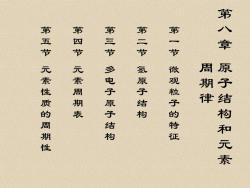 第八章 原子结构和元素
周期律
第一节 微观粒子的特征
第二节 氢原子结构
第三节 多电子原子结构
第四节 元素周期表
第五节 元素性质的周期性